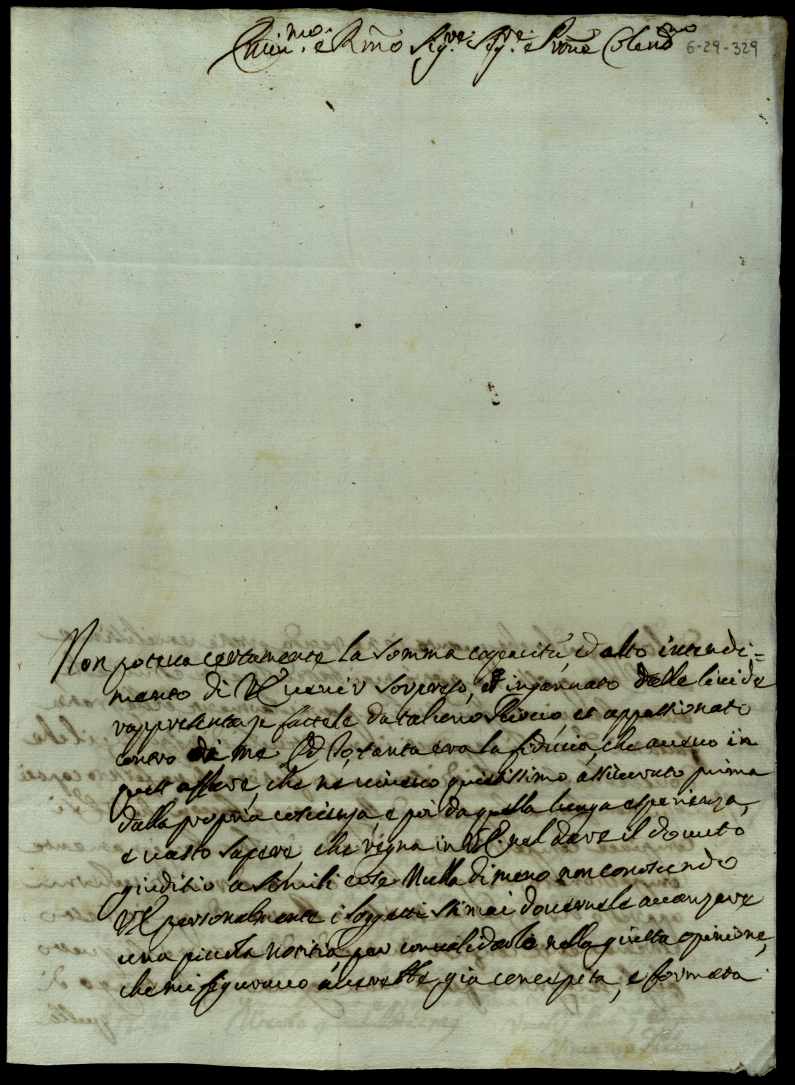 Illmo: e Rmo Sigre: Sigre: e Prone Colendmo
6-29-329
Non poteva certamente la somma capacità, ed alto intendi=
mento di VS venir sorpreso, ed ingannato dalle livide
rappresentanze fattele da taluno et appassionato
contro di me Ed Io, tanta era la fiducia, che avevo in
quest affare, che ne vivevo quietissimo assicurato prima
dalla propria coscienza, e poi da quella lunga esperienza,
e vasto sapere, che regna in VS. nel dare il dovuto
giuditio a simili cose Nulladimeno non conoscendo
VS personalmente i soggetti stimai dovernele avanzare
una piccola notitia, per convalidarla nella giusta opinione,
che mi figuravo già concepita, e formata
quella